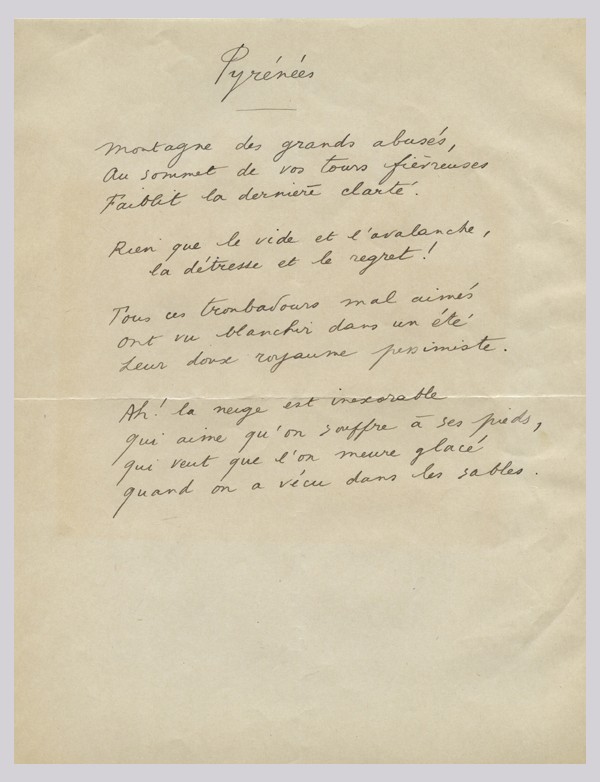 Pyrénées
Montagne des grands abusés,
Au sommet de vos tours fiévreuses
Faiblit la dernière clarté.
Rien que le vide et l'avalanche,
la détresse et le regret !
Tous ces troubadours mal aimés
ont vu blanchir dans un été
Leur doux royaume pessimiste.
Ah! la neige est inexorable
qui aime qu'on souffre à ses pieds,
qui veut que l'on meure glacé
quand on a vécu dans les sables.